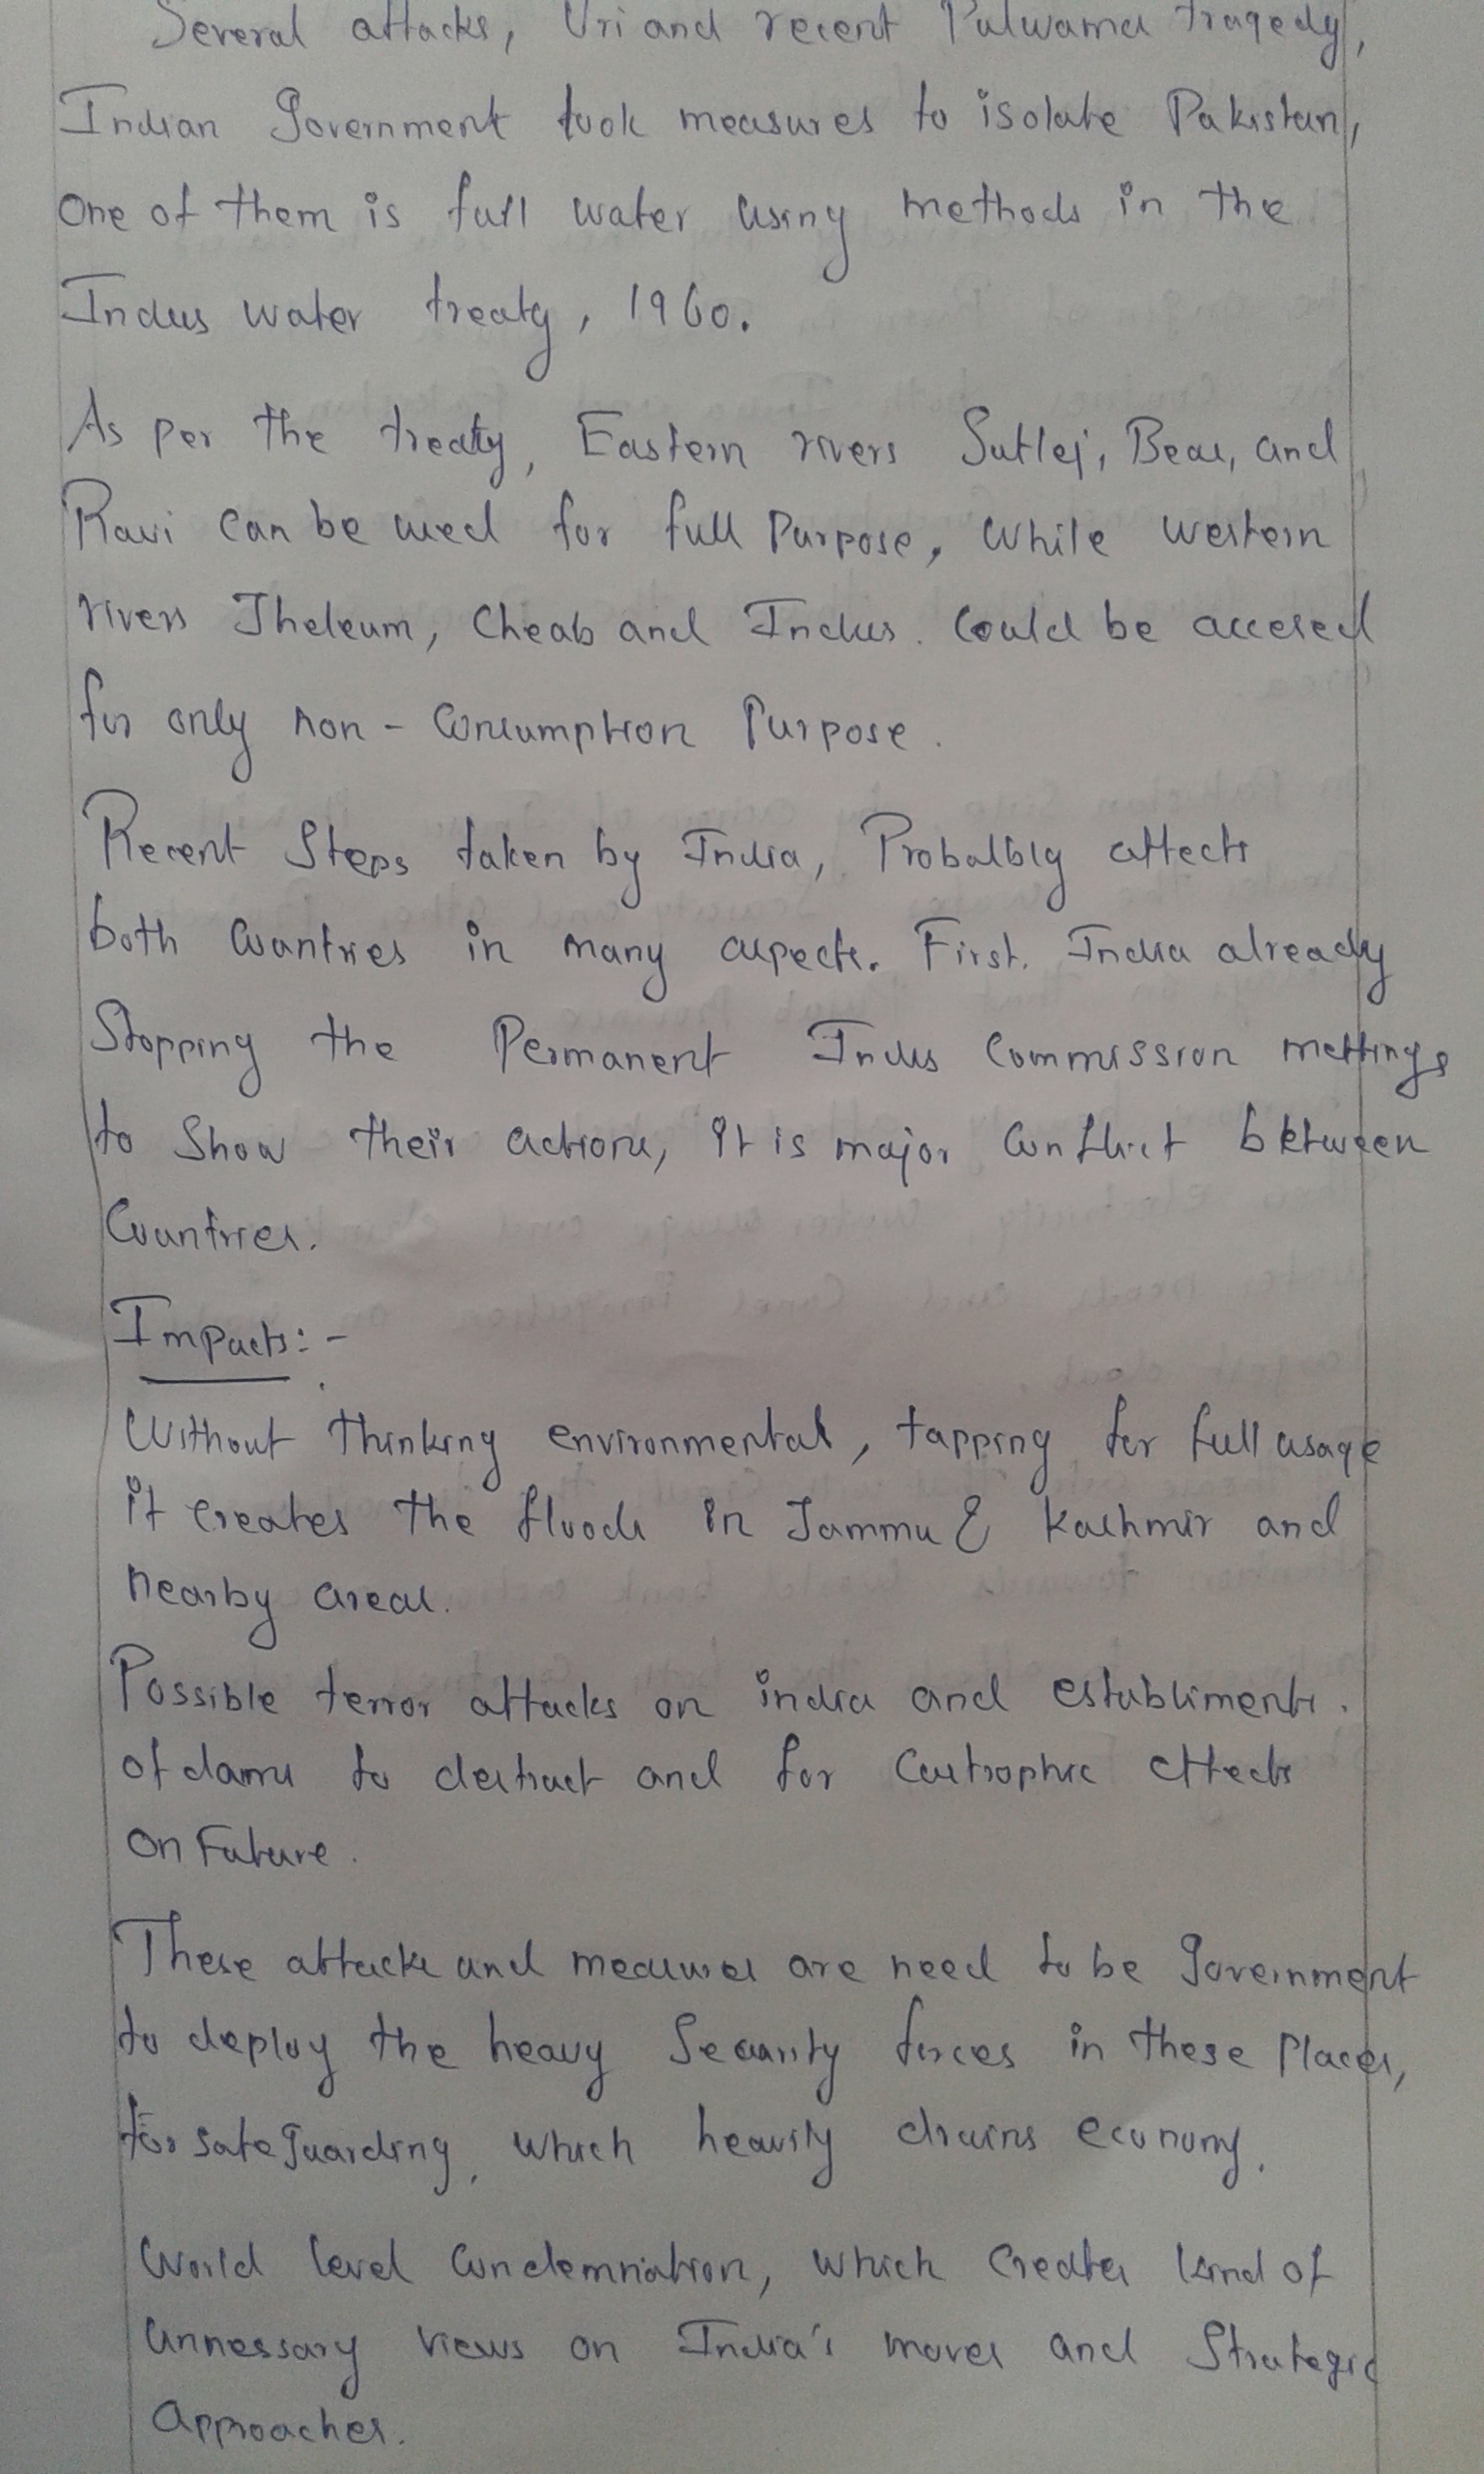 Several attacks, Uri and recent Pulwama tragedy,
Indian Government took measures to isolate Pakistan,
One of them is full water using methods in the
Indus water treaty, 1960.
As per the treaty, Eastern rivers Sutlej, Beas, and
Ravi can be used for full purpose, while western
rivers Jheleum, Cheab and Indus. Could be accesed
for only non - consumption purpose.
Recent steps taken by India, Probalbly affects
both countries in many aspects. First. India already
Stopping the Permanent Indus Commission mettings
to show their actions, It is major conflict between
Countries.
Impacts: -
Without thinking environmental, tapping for full usage
it creates the floods in Jammu & Kashmir and
nearby areas.
Possible terror attacks on india and establiments.
of dams to destruct and for castrophic effects
on Future.
These attacks and measures are need to be Government
to deploy the heavy Security forces in these places,
for safe guarding, which heavily drains economy.
World level condemnation, which creates kind of
unnessary views on India's moves and Strategic
Approaches.